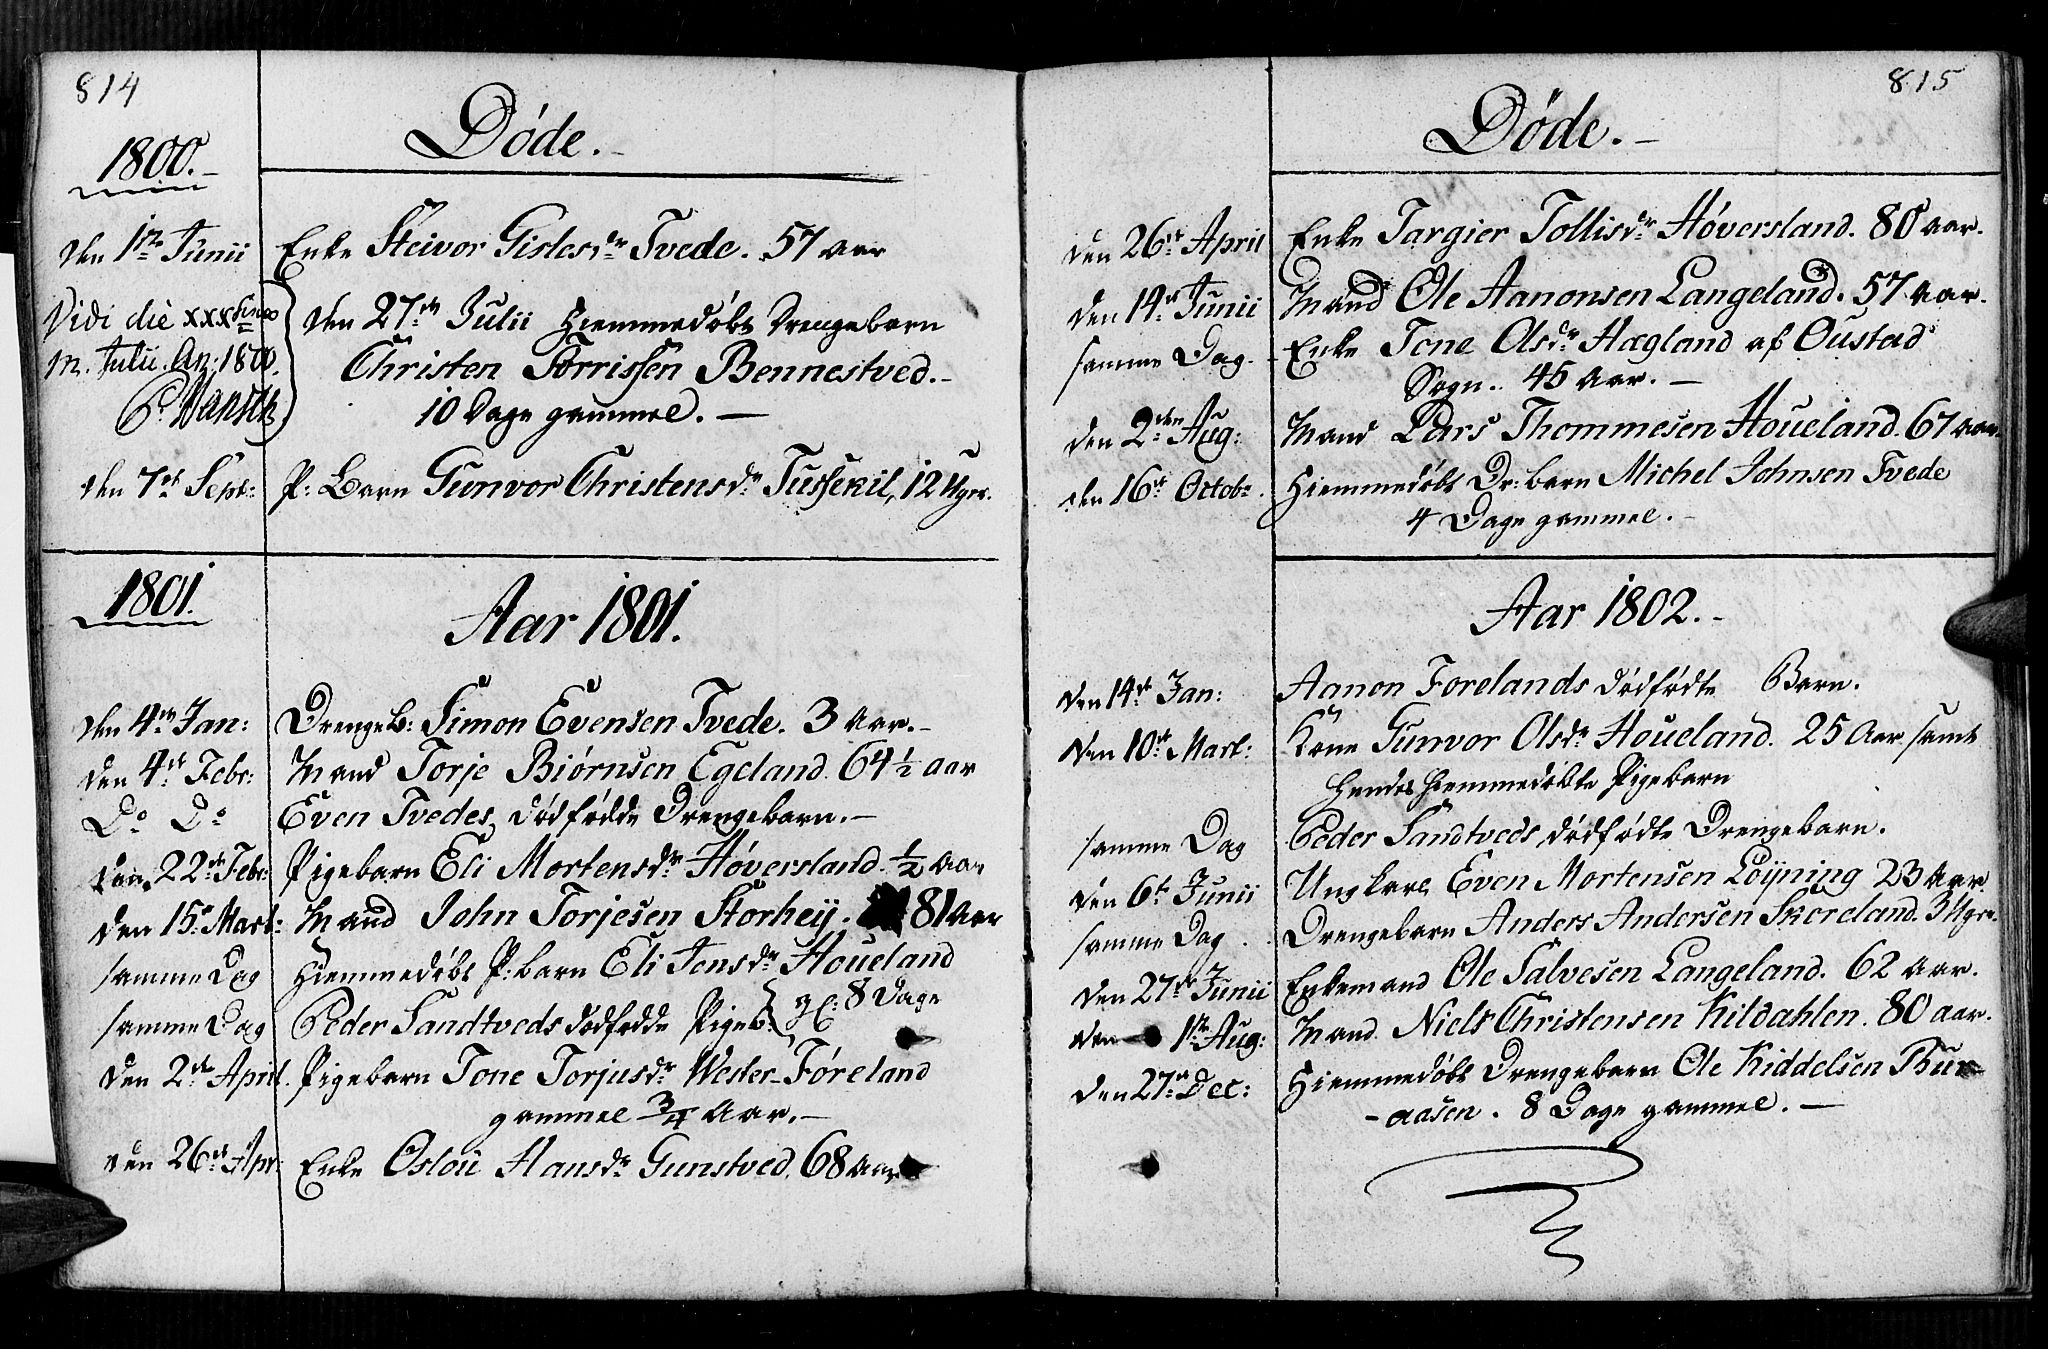 814
Døde.
1800.
den 1ste Junii Enke Steivor Gislesdr Tvede. 57 aar
Vidi die xxxsimo
m. Julii. An: 1800.
P. Hansen
den 27de Julii Hiemmedøbt Drengebarn
Christen Torrissen Bennestved.
10 Dage gammel.
den 7de Sept: P: Barn Gunvor Christensdr Tussekil, 12 Uger.
1801.
Aar 1801.
den 4de Jan: Drengeb: Simon Evensen Tvede. 3 Aar.
den 4de Febr: Mand Torje Biørnsen Egeland. 64 1/2 aar
Do Do Even Tvedes, dødfødde Drengebarn.
den 22de Febr: Pigebarn Eli Mortensdr Høversland. 1/2 Aar
den 15de Mart: Mand John Torjesen Storhey. 81 Aar
samme Dag Hiemmedøbt P: barn Eli Jensdr Houeland
gl: 8 Dage
samme Dag Peder Sandtveds dødfødde Pigeb:
den 2de April. Pigebarn Tone Torjusdr Wester-Føreland
gammel 3/4 Aar.
den 26de Apr: Enke Oslou Hansdr Gunstved. 68 Aar
815
Døde.
den 26de April Enke Targier Tollisdr Høversland. 80 aar.
den 14de Junii Mand Ole Aanonsen Langeland. 57 Aar.
samme Dag. Enke Tone Olsdr Hægland af Oustad
Sogn. 45 Aar.
den 2den Aug: Mand Lars Thommesen Houeland. 67 aar.
den 16de Octobr. Hiemmedøbt Dr: barn Michel Johnsen Tvede
4 Dage gammel.
Aar 1802.
den 14de Jan: Aanon Forelands dødfødte Barn.
den 10de Mart: Kone Gunvor Olsdr Houeland. 25 Aar samt
Hendes Hiemmedøbte Pigebarn
samme Dag Peder Sandtveds, dødfødte Drengebarn.
den 6te Junii Ungkarl Even Mortensen Løyning 23 Aar.
samme Dag Drengebarn Anders Andersen Skoreland. 3 Uger.
den 27de Junii Enkemand Ole Salvesen Langeland. 62 Aar.
den 1ste Aug: Mand Niels Christensen Kildahlen. 80 aar.
den 27de Dec: Hiemmedøbt Drengebarn Ole Kiddelsen Bur-
-aasen. 8 Dage gammel.